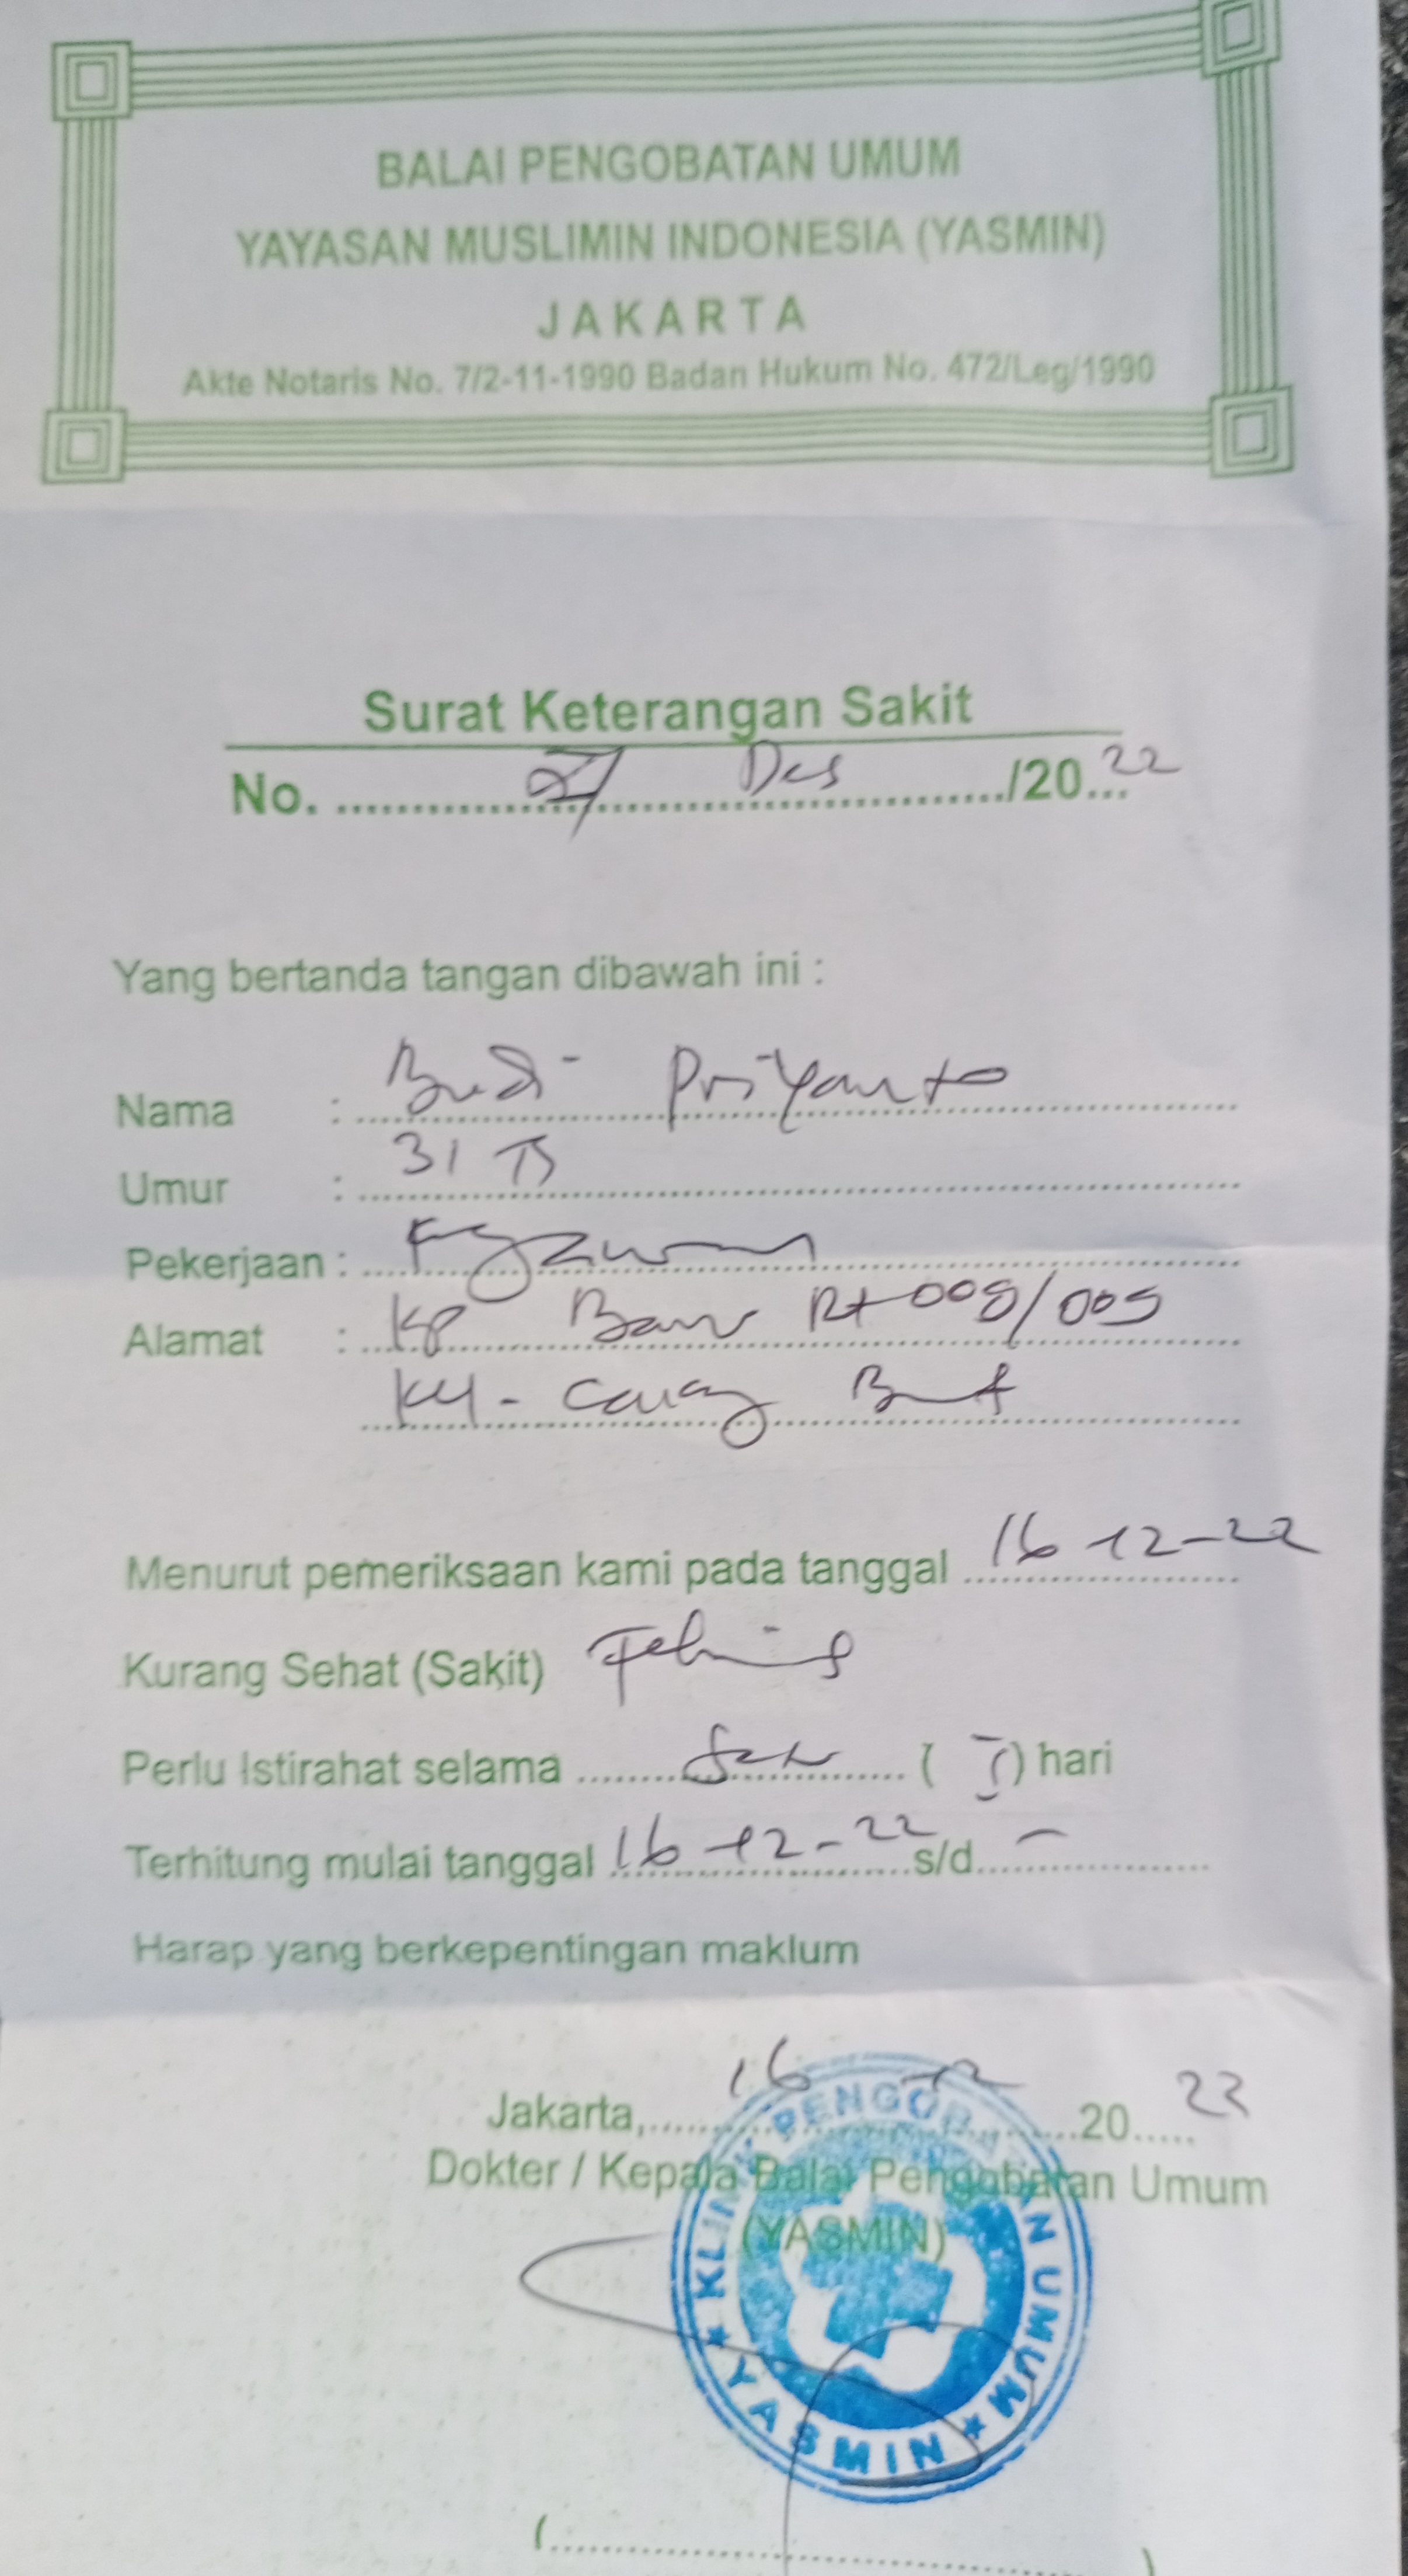 BALAI PENGOBATAN UMUM
YAYASAN MUSLIMIN INDONESIA (YASMIN)
JAKARTA
Akte Notaris No. 7/2-11-1990 Badan Hukum No. 472/Leg/1990
Surat Keterangan Sakit
No. Des /2022
Yang bertanda tangan dibawah ini :
Nama : Budi Priyanto
Umur : 31 Th
Pekerjaan :
Alamat : Kp Baru Rt 008/005
Menurut pemeriksaan kami pada tanggal 16-12-22
Kurang Sehat (Sakit) Febris
Perlu Istirahat selama Satu (I) hari
Terhitung mulai tanggal 16-12-22 s/d -
Harap yang berkepentingan maklum
Jakarta, 16-12 2022
Dokter / Kepala Balai Pengobatan Umum
(YASMIN)
KLINIK PENGOBATAN UMUM
YASMIN